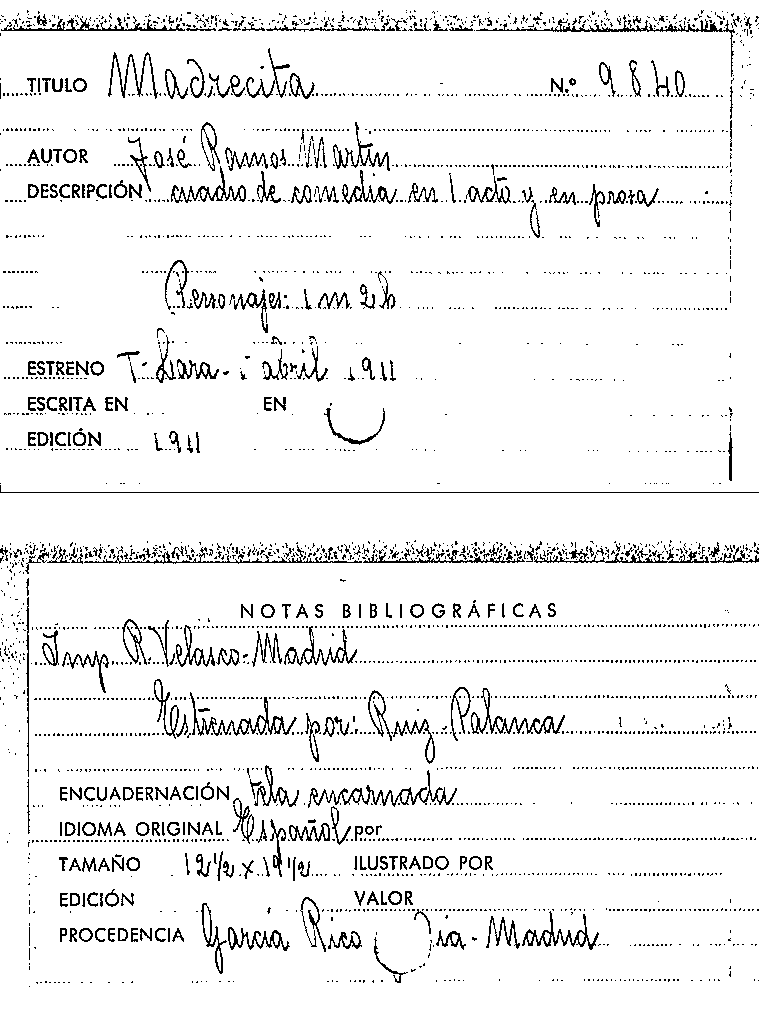 TITULO Madrecita N.º 9840
AUTOR José Ramos Martin
DESCRIPCIÓN cuadro de comedia en 1 acto y en prosa
Personajes: 1 m 2 h
ESTRENO T. Lara - abril 1911
ESCRITA EN EN
EDICIÓN 1911
NOTAS BIBLIOGRÁFICAS
Imp. R. Velasco - Madrid
Estrenada por: Ruiz - Palanca
ENCUADERNACIÓN tela encarnada
IDIOMA ORIGINAL Español por
TAMAÑO 12 1/2 x 19 1/2 ILUSTRADO POR
EDICIÓN VALOR
PROCEDENCIA García Rico ia - Madrid